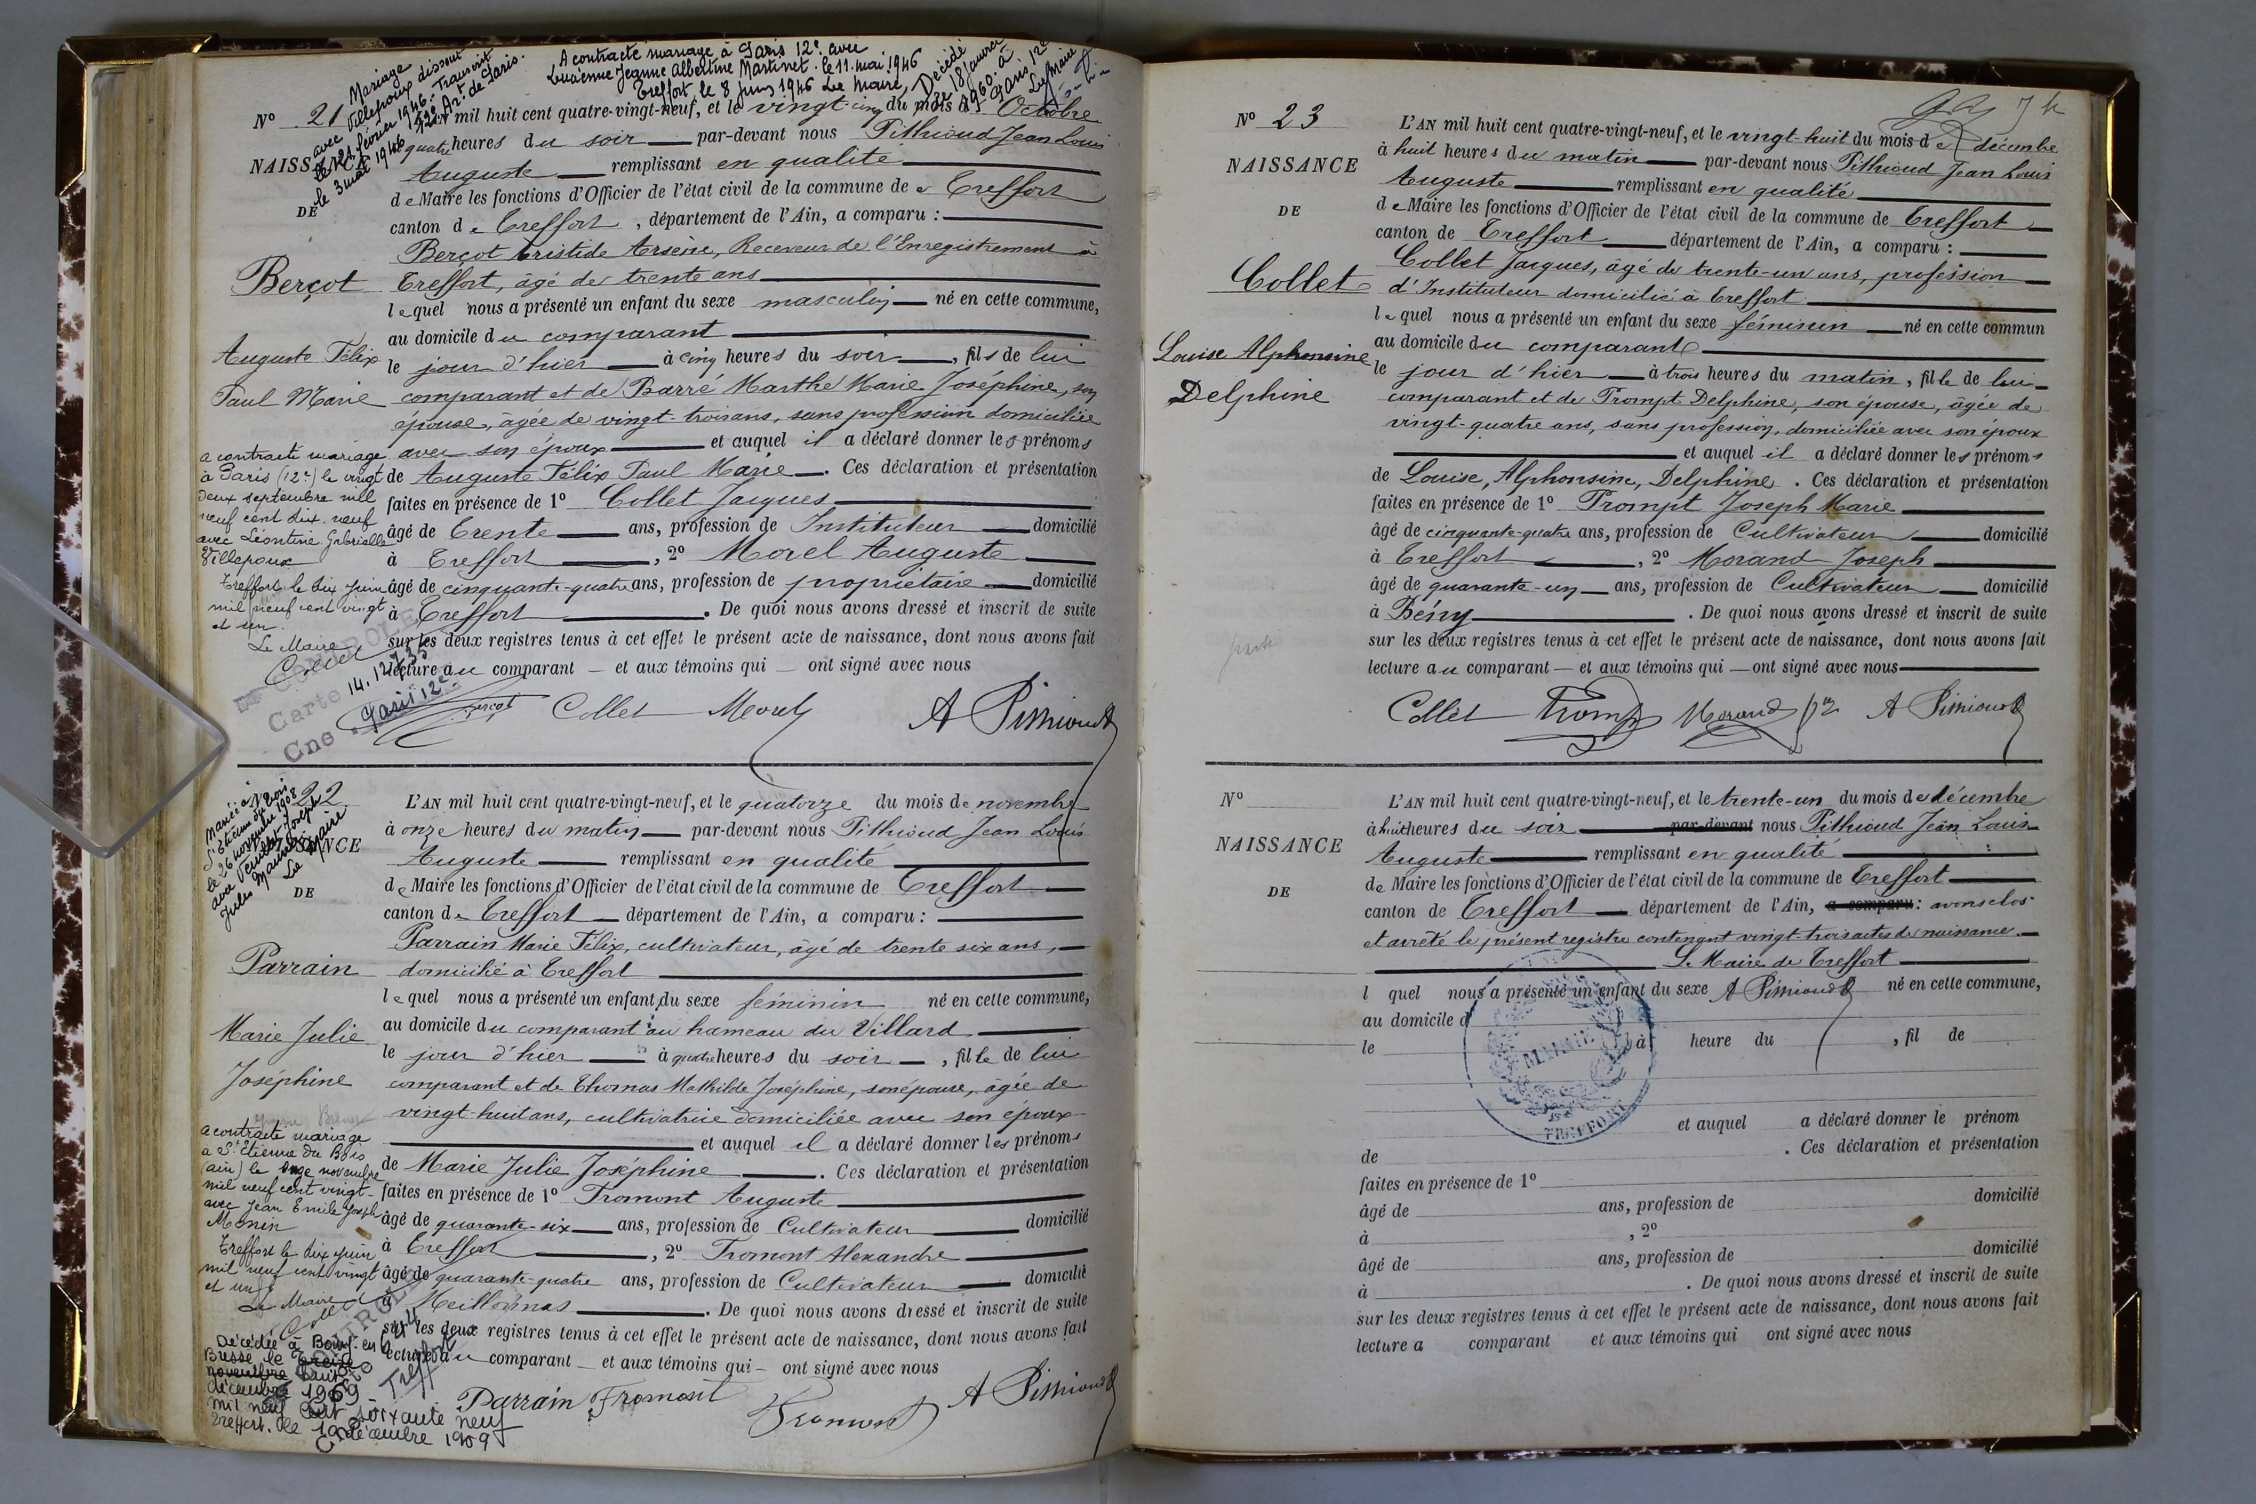 Mariage
avec Villepoux dissout
le 21 février 1946. Transcrit
le 3 mai 1946 12e Art. de Paris.
A contracté mariage à Paris 12e. avec
Lucienne Jeanne Albertine Martinet. le 11. mai 1946
Treffort, le 8 juin 1946 Le Maire,
Décédé
le 18 janvier
1960. à
Paris 12e
Le Maire
No 21
NAISSANCE
DE
Berçot
Auguste Félix
Paul Marie
L'AN mil huit cent quatre-vingt-neuf, et le vingt-cinq du mois d' Octobre
à quatre heures du soir par-devant nous Pithioud Jean Louis
Auguste remplissant en qualité
de Maire les fonctions d'Officier de l'état civil de la commune de Treffort
canton de Treffort, département de l'Ain, a comparu :
Berçot Aristide Arsène, Receveur de l'Enregistrement à
Treffort, âgé de trente ans
lequel nous a présenté un enfant du sexe masculin né en cette commune,
au domicile du comparant
le jour d'hier à cinq heures du soir, fils de lui
comparant et de Barré Marthe Marie Joséphine, son
épouse, âgée de vingt-trois ans, sans profession domiciliée
avec son époux et auquel il a déclaré donner les prénoms
de Auguste Félix Paul Marie. Ces déclaration et présentation
faites en présence de 1o Collet Jacques
âgé de Trente ans, profession de Instituteur domicilié
à Treffort, 2o Morel Auguste
âgé de cinquante-quatre ans, profession de propriétaire domicilié
à Treffort. De quoi nous avons dressé et inscrit de suite
sur les deux registres tenus à cet effet le présent acte de naissance, dont nous avons fait
lecture au comparant et aux témoins qui ont signé avec nous
Berçot Collet Morel A Pithioud
a contracté mariage
à Paris (12e) le vingt
deux septembre mil
neuf cent dix-neuf
avec Léontine Gabrielle
Villepoux
Treffort le dix juin
mil neuf cent vingt
et un.
Le Maire
Collet
CONTROLE
Carte 14.12.
Cne. Paris 12e.
Mariée à
St Etienne du Bois
le 26 novembre 1908
avec Veuillet Joseph
Jules Maurice
Le Maire
No 22
NAISSANCE
DE
Parrain
Marie Julie
Joséphine
L'AN mil huit cent quatre-vingt-neuf, et le quatorze du mois de novembre
à onze heures du matin par-devant nous Pithioud Jean Louis
Auguste remplissant en qualité
de Maire les fonctions d'Officier de l'état civil de la commune de Treffort
canton de Treffort département de l'Ain, a comparu :
Parrain Marie Félix, cultivateur, âgé de trente six ans,
domicilié à Treffort
lequel nous a présenté un enfant du sexe féminin né en cette commune,
au domicile du comparant au hameau du Villard
le jour d'hier à quatre heures du soir, fille de lui
comparant et de Thomas Mathilde Joséphine, son épouse, âgée de
vingt-huit ans, cultivatrice domiciliée avec son époux
et auquel il a déclaré donner les prénoms
de Marie Julie Joséphine. Ces déclaration et présentation
faites en présence de 1o Fromont Auguste
âgé de quarante-six ans, profession de Cultivateur domicilié
à Treffort, 2o Fromont Alexandre
âgé de quarante-quatre ans, profession de Cultivateur domicilié
à Meillonnas. De quoi nous avons dressé et inscrit de suite
sur les deux registres tenus à cet effet le présent acte de naissance, dont nous avons fait
lecture au comparant et aux témoins qui ont signé avec nous
Parrain Fromont
Fromont A Pithioud
a contracté mariage
à St Etienne du Bois
(ain) le onze novembre
mil neuf cent vingt
avec Jean Emile Joseph
Monin
Treffort le dix juin
mil neuf cent vingt
et un
Le Maire
Collet
CONTROLE
Treffort
Décédée à Bourg-en-
Bresse le treize
novembre huit
décembre 1969
mil neuf cent soixante neuf
Treffort. le 19 décembre 1969
No 23
NAISSANCE
DE
Collet
Louise Alphonsine
Delphine
L'AN mil huit cent quatre-vingt-neuf, et le vingt-huit du mois de décembre
à huit heures du matin par-devant nous Pithioud Jean Louis
Auguste remplissant en qualité
de Maire les fonctions d'Officier de l'état civil de la commune de Treffort
canton de Treffort département de l'Ain, a comparu :
Collet Jacques, âgé de trente-un ans, profession
d'Instituteur domicilié à Treffort
lequel nous a présenté un enfant du sexe féminin né en cette commun
au domicile du comparant
le jour d'hier à trois heures du matin, fille de lui
comparant et de Prompt Delphine, son épouse, âgée de
vingt-quatre ans, sans profession, domiciliée avec son époux
et auquel il a déclaré donner les prénoms
de Louise, Alphonsine, Delphine. Ces déclaration et présentation
faites en présence de 1o Prompt Joseph Marie
âgé de cinquante-quatre ans, profession de Cultivateur domicilié
à Treffort, 2o Morand Joseph
âgé de quarante-un ans, profession de Cultivateur domicilié
à Bény. De quoi nous avons dressé et inscrit de suite
sur les deux registres tenus à cet effet le présent acte de naissance, dont nous avons fait
lecture au comparant et aux témoins qui ont signé avec nous
Collet Prompt Morand A Pithioud
No
NAISSANCE
DE
L'AN mil huit cent quatre-vingt-neuf, et le trente-un du mois de décembre
à huit heures du soir par-devant nous Pithioud Jean Louis
Auguste remplissant en qualité
de Maire les fonctions d'Officier de l'état civil de la commune de Treffort
canton de Treffort département de l'Ain, a comparu : avons clos
et arrêté le présent registre contenant vingt-trois actes de naissance.
Le Maire de Treffort
l quel nous a présenté un enfant du sexe A Pithioud né en cette commune,
au domicile d
le à heure du , fil de
MAIRIE
TREFFORT
et auquel a déclaré donner le prénom
de . Ces déclaration et présentation
faites en présence de 1o
âgé de ans, profession de domicilié
à , 2o
âgé de ans, profession de domicilié
à . De quoi nous avons dressé et inscrit de suite
sur les deux registres tenus à cet effet le présent acte de naissance, dont nous avons fait
lecture a comparant et aux témoins qui ont signé avec nous